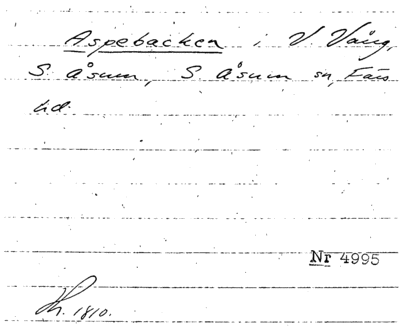 Aspebacken i V Vång,
S Åsum, S Åsum sn, Färs
hd.
Nr 4995
Kh. 1810.